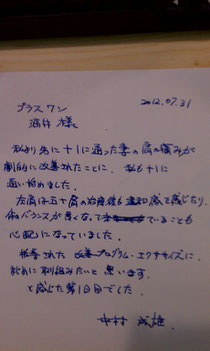 2012.07.31
プラスワン
酒井 様
私より先に+1に通った妻の肩の痛みが
劇的に改善されたことに、私も+1に
通い始めました。
左肩は五十肩の治療後も違和感を感じたり、
体バランスが悪くなっていることも
心配になっていました。
改善プログラム・エクササイズに
取組みたいと思います。
と感じた第1日目でした。
中村